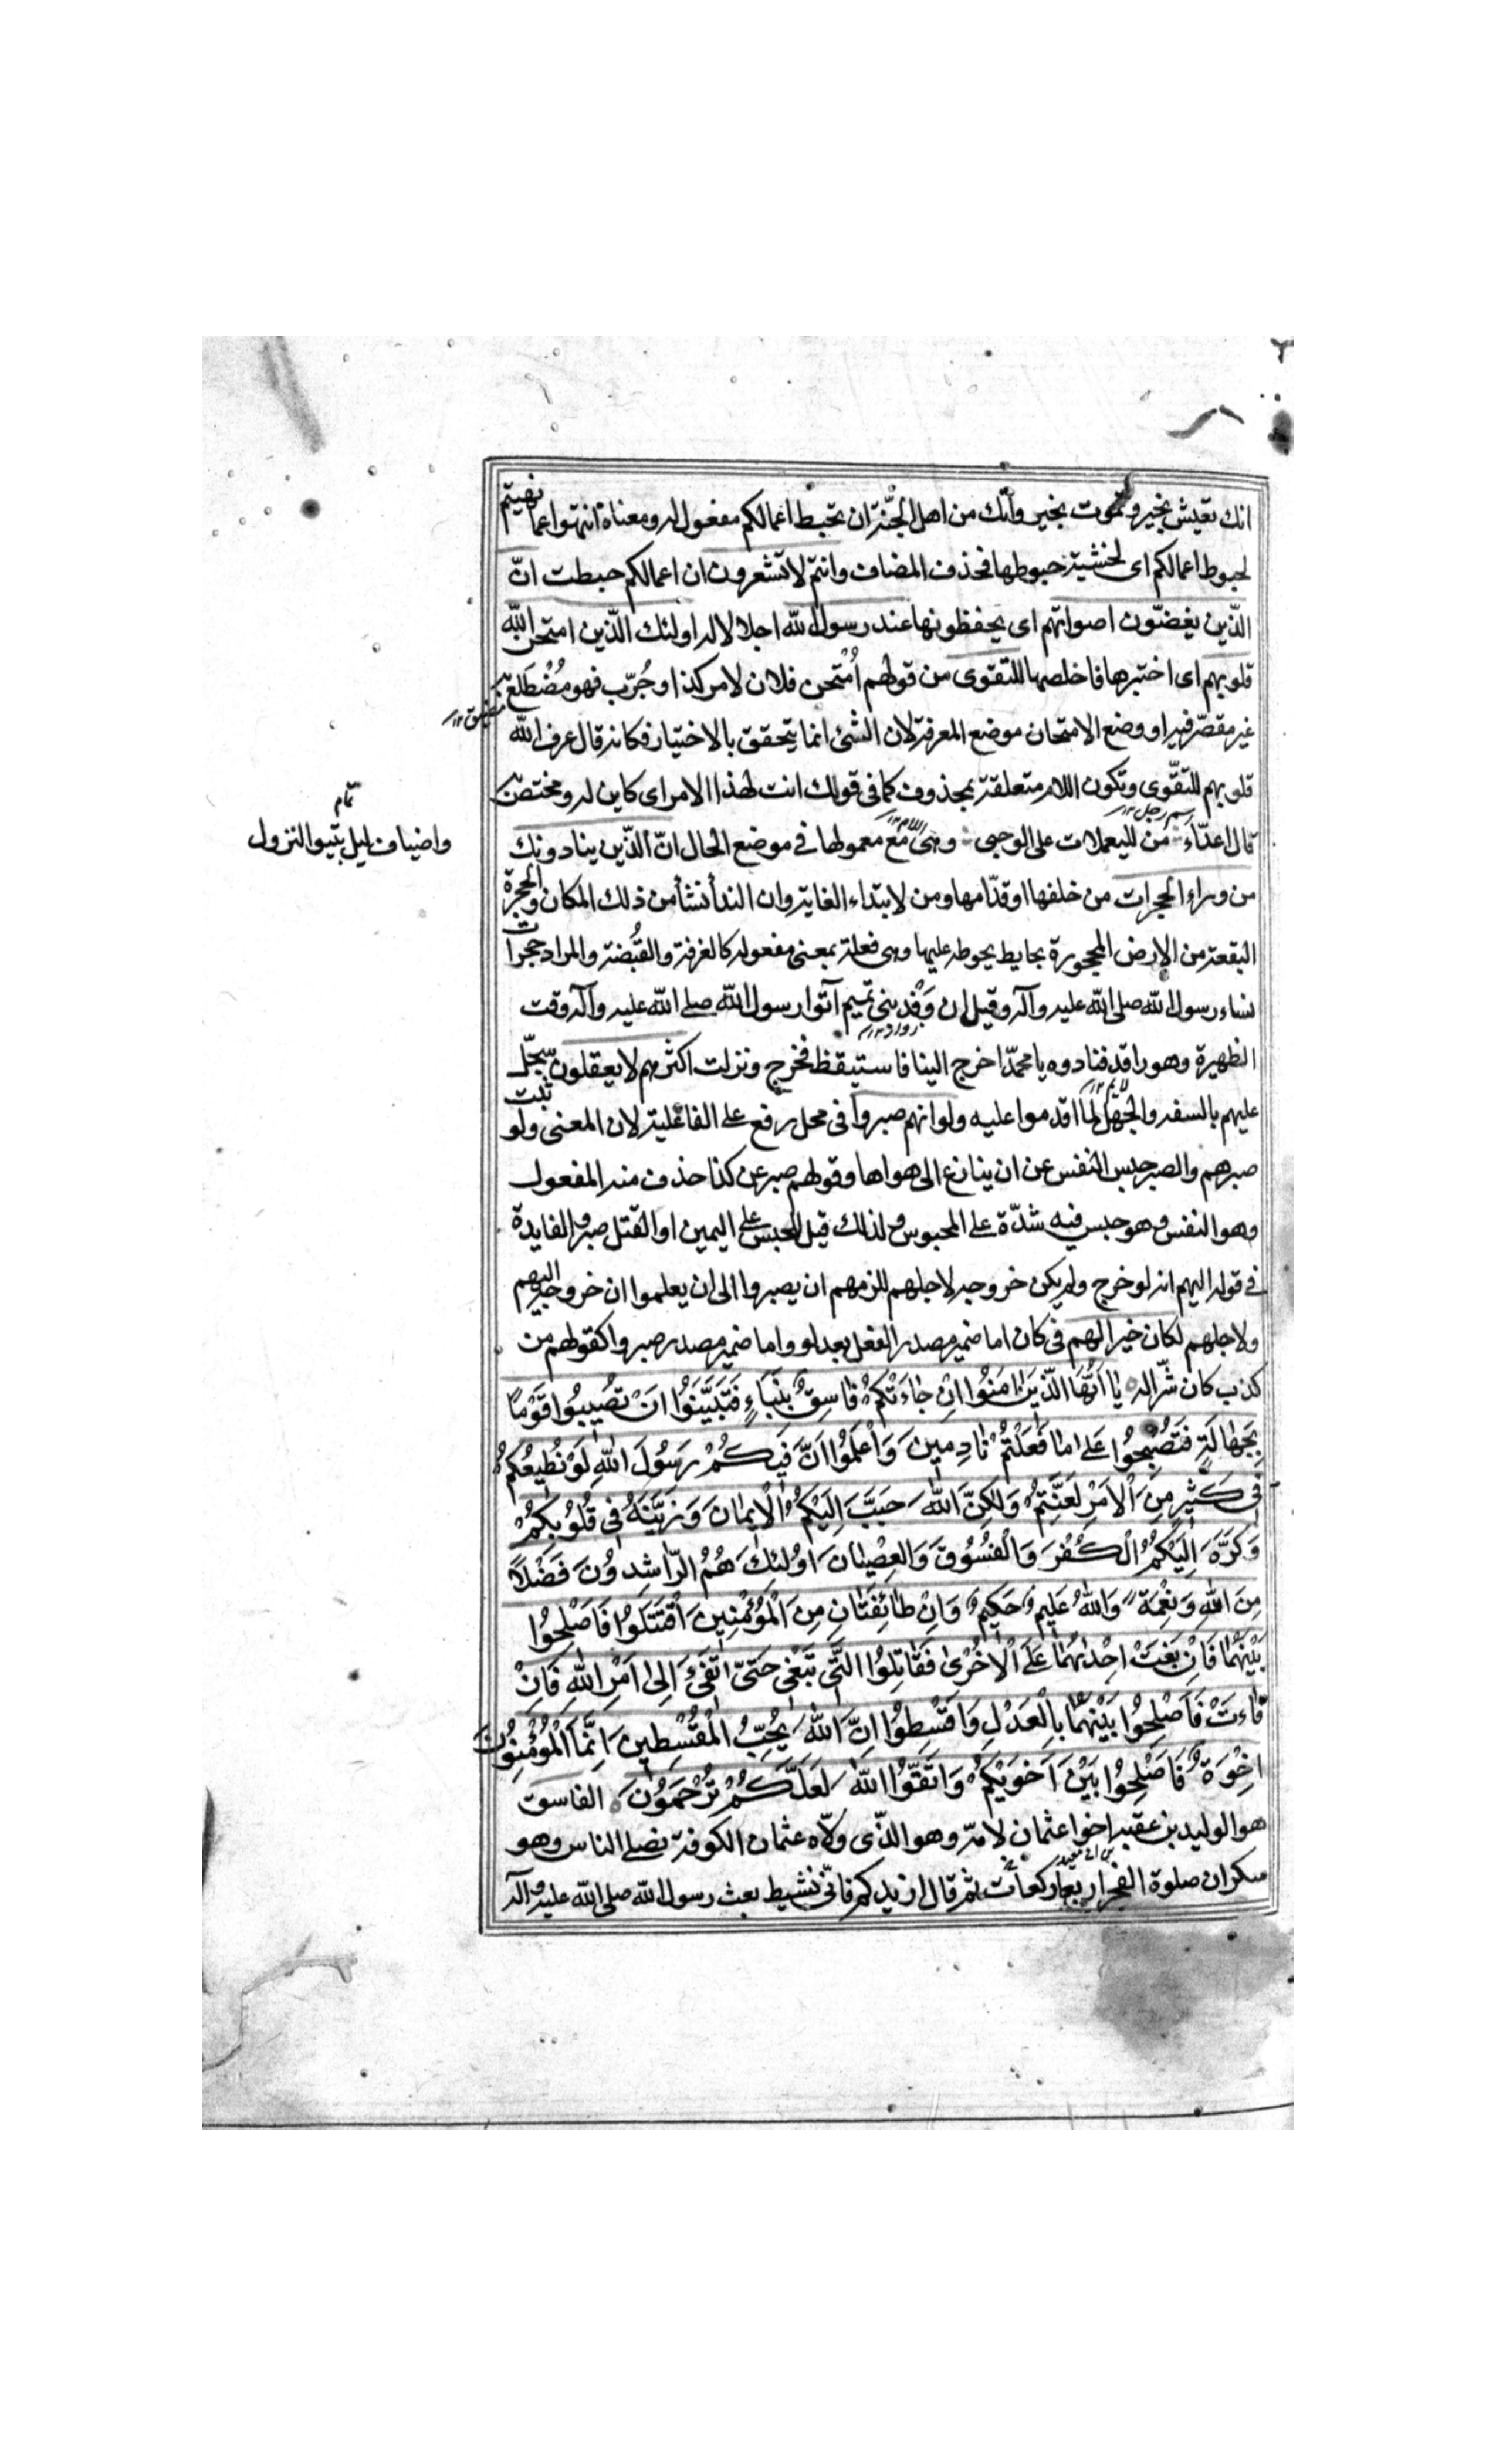 انك تعيش بخير وتموت بخير وانّك من اهل الجنّة ان تحبط اعمالكم مفعول له ومعناه انتهوا عما نهيتم
لحبوط اعمالكم اى لخشية حبوطها فحذف المضاف وانتم لا تشعرون ان اعمالكم حبطت انّ
الّذين يغضّون اصواتهم اى يحفظونها عند رسول الله اجلالا له اولئك الّذين امتحن الله
قلوبهم اى اختبرها فاخلصها للتقوى من قولهم اُمتحن فلان لامر كذا وجُرّب فهو مُضْطَلع به
غير مقصّر فيه او وضع الامتحان موضع المعرفة لان الشئ انما يتحقق بالاختيار فكانه قال عرف الله
قلوبهم للتّقوى وتكون اللام متعلقة بمحذوف كما فى قولك انت لهذا الامر اى كاين له ومختص به
قال اعدّاء من لليعملات على الوجى وهى مع معمولها فى موضع الحال انّ الّذين ينادونك
من وراء الحجرات من خلفها او قدّامها ومن لابتداء الغاية وان الندأ نشأ من ذلك المكان والحجرة
البقعة من الارض المحجورة بحايط يحوط عليها وهى فعلة بمعنى مفعوله كالغرفة والقُبضة والمراد حجرات
نساء رسول الله صلى الله عليه وآله وقيل ان وَفْد بنى تميم اتوا رسول الله صلى الله عليه وآله وقت
الظهيرة وهو راقد فنادوه يا محمّد اخرج الينا فاستيقظ فخرج ونزلت اكثرهم لا يعقلون سجّل
عليهم بالسفه والجهل لما اقدموا عليه ولو انهم صبروا فى محل رفع على الفاعلية لان المعنى ولو ثبت
صبرهم والصبر حبس النفس عن ان ينازع الى هواها وقولهم صبر عن كذا حذف منه المفعول
وهو النفس وهو حبس فيه شدّة على المحبوس ولذلك قيل للحبس على اليمين او القتل صبر والفايدة
فى قوله اليهم انه لو خرج ولم يكن خروجه لاجلهم للزمهم ان يصبروا الى ان يعلموا ان خروجه اليهم
ولاجلهم لكان خيرا لهم فى كان اما ضمير مصدر الفعل بعد لو واما ضمير مصدر صبروا كقولهم من
كذب كان شرّا له يا اَيُّهَا الَّذينَ امَنُوا اِنْ جاءَكُمْ فاسِقٌ بِنَبَاءٍ فَتَبَيَّنُوا اَنْ تُصيبُوا قَوْمًا
بِجَهالَةٍ فَتُصْبِحُوا عَلى ما فَعَلْتُمْ نادِمينَ وَاعْلَمُوا اَنَّ فيكُمْ رَسُولَ اللهِ لَوْ يُطيعُكُمْ
فى كَثيرٍ مِنَ الْاَمْرِ لَعَنِتُّمْ وَلكِنَّ اللهَ حَبَّبَ اِلَيْكُمُ الْايمانَ وَزَيَّنَهُ فى قُلُوبِكُمْ
وَكَرَّهَ اِلَيْكُمُ الْكُفْرَ وَالْفُسُوقَ وَالْعِصْيانَ اُولئِكَ هُمُ الرّاشِدُونَ فَضْلًا
مِنَ اللهِ وَنِعْمَةً وَاللهُ عَليمٌ حَكيمٌ وَاِنْ طائِفَتانِ مِنَ الْمُؤْمِنينَ اقْتَتَلُوا فَاَصْلِحُوا
بَيْنَهُما فَاِنْ بَغَتْ اِحْدىهُما عَلَى الْاُخْرى فَقاتِلُوا الَّتى تَبْغى حَتّى تَفىءَ اِلى اَمْرِ اللهِ فَاِنْ
فاءَتْ فَاَصْلِحُوا بَيْنَهُما بِالْعَدْلِ وَاَقْسِطُوا اِنَّ اللهَ يُحِبُّ الْمُقْسِطينَ اِنَّمَا الْمُؤْمِنُونَ
اِخْوَةٌ فَاَصْلِحُوا بَيْنَ اَخَوَيْكُمْ وَاتَّقُوا اللهَ لَعَلَّكُمْ تُرْحَمُونَ الفاسق
هو الوليد بن عقبه اخو اعثمان لامّه وهو الّذى ولّاه عثمان الكوفة فصلى بالناس وهو
سكران صلوة الفجر اربعا ركعات ثم قال ازيدكم فانّى نشيط بعث رسول الله صلى الله عليه وآله
تمام
واضياف ليل بيّتوا النزول